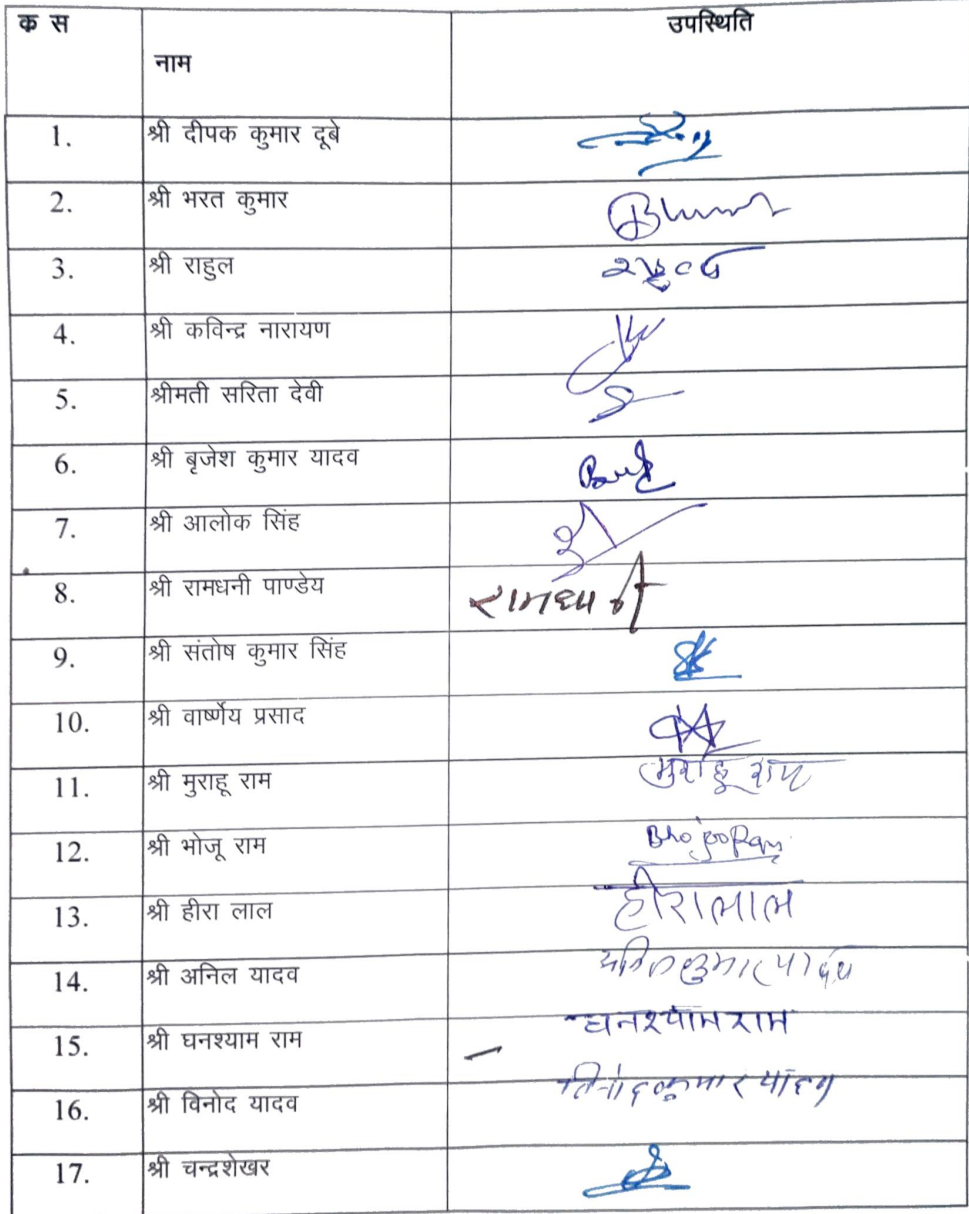 क स नाम उपस्थिति
1. श्री दीपक कुमार दूबे
2. श्री भरत कुमार
3. श्री राहुल
4. श्री कविन्द्र नारायण
5. श्रीमती सरिता देवी
6. श्री बृजेश कुमार यादव
7. श्री आलोक सिंह
8. श्री रामधनी पाण्डेय रामधनी
9. श्री संतोष कुमार सिंह
10. श्री वार्ष्णेय प्रसाद
11. श्री मुराहू राम मुराहू राम
12. श्री भोजू राम Bhojoo Ram
13. श्री हीरा लाल हीरालाल
14. श्री अनिल यादव
15. श्री घनश्याम राम घनश्याम राम
16. श्री विनोद यादव विनोद कुमार यादव
17. श्री चन्द्रशेखर